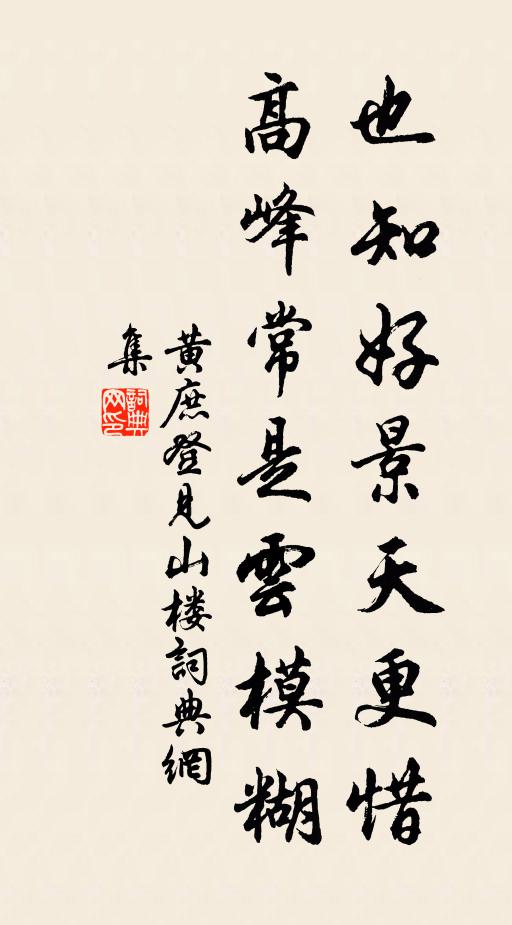 也知好景天更惜
高峰常是雲模糊
黃庶登見山楼詞典網
集
詞典
网印